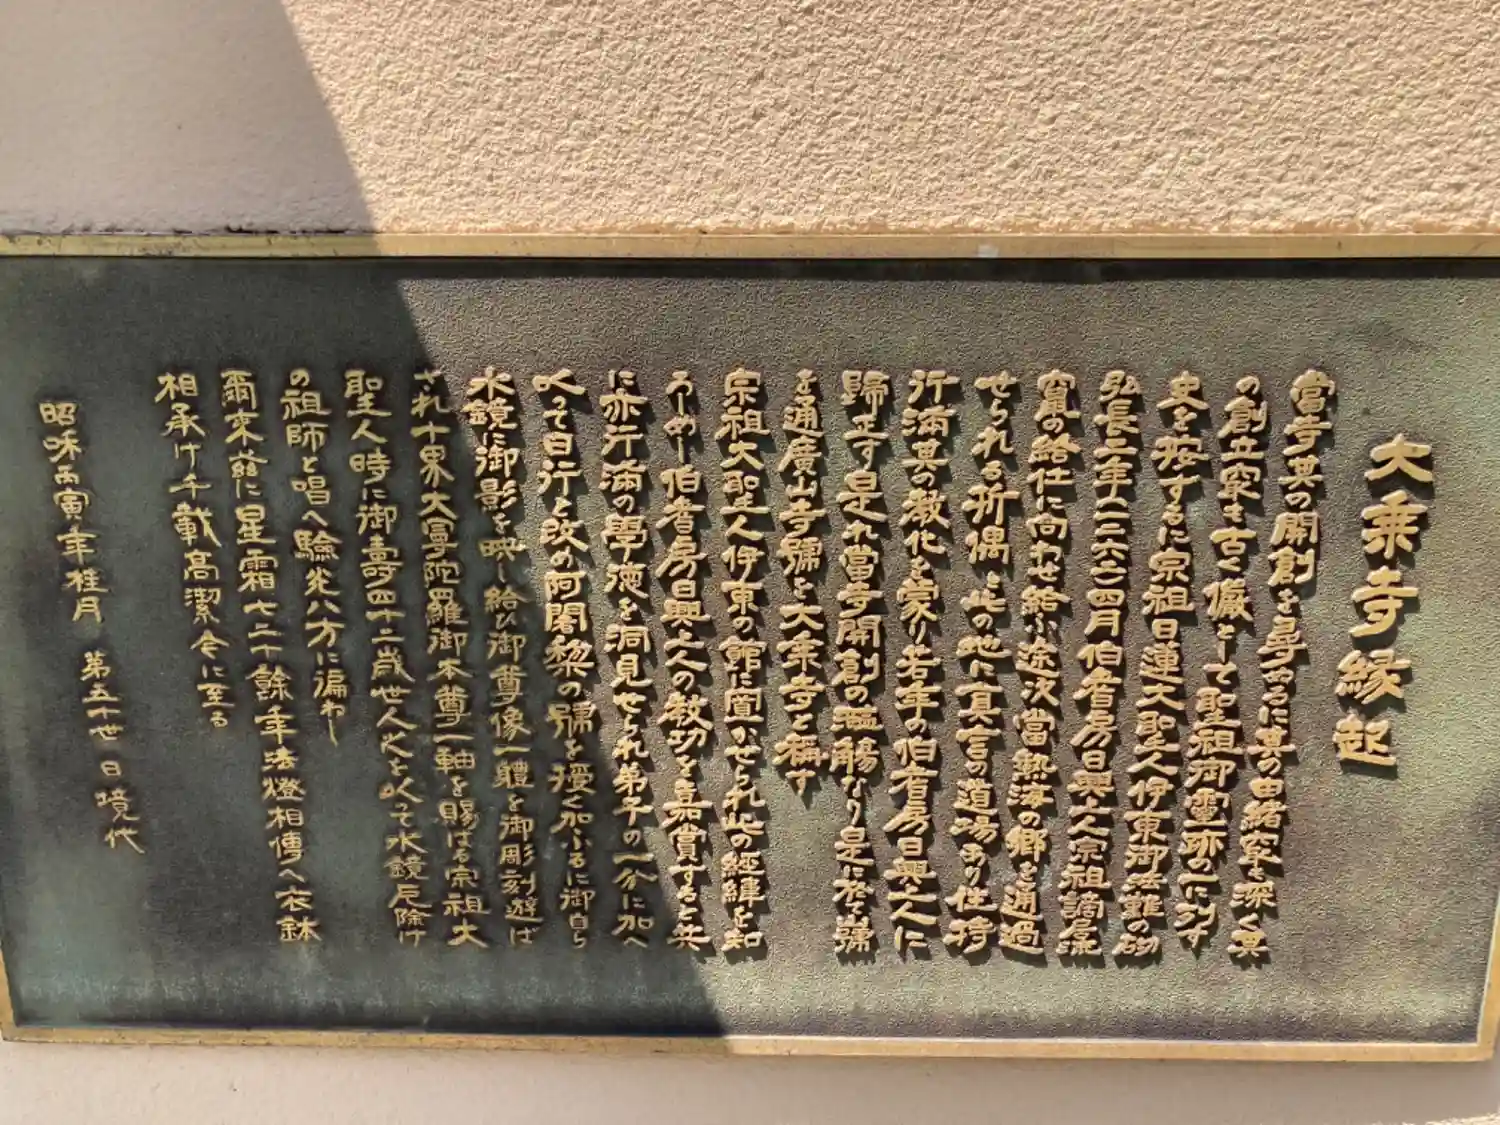 大乗寺縁起
當寺其の開創を尋ぬるに其の由緒窂と深く其
の創立窂き古く儼として聖祖御霊跡の一に列す
史を按するに宗祖日蓮大聖人伊東御法難の砌
弘長二年(一二六二)四月伯耆房日興上人宗祖謫居流
竄の給仕に向わせ給ふ途次當熱海の郷を通過
せられる折偶と此の地に真言の道場あり住持
行満其の教化を蒙り若年の伯耆房日興上人に
歸正す是れ當寺開創の濫觴なり是に於て號
を通廣山寺號を大乗寺と稱す
宗祖大聖人伊東の館に聞かせられ此の經緯を知
ろしめし伯耆房日興上人の教功を嘉賞すると共
に亦行満の學徳を洞見せられ弟子の一分に加へ
以って日行と改め阿闍黎の號を授く加ふるに御自ら
水鏡に御影を映し給ひ御尊像一軆を御彫刻遊ば
され十界大曼陀羅御本尊一軸を賜はる宗祖大
聖人時に御壽四十二歳世人火を以って水鏡厄除け
の祖師と唱へ驗光八方に漏わし
爾来茲に星霜七二十餘年法燈相傳へ衣鉢
相承け千載高潔今に至る
昭和丙寅年桂月　第五十世日境代